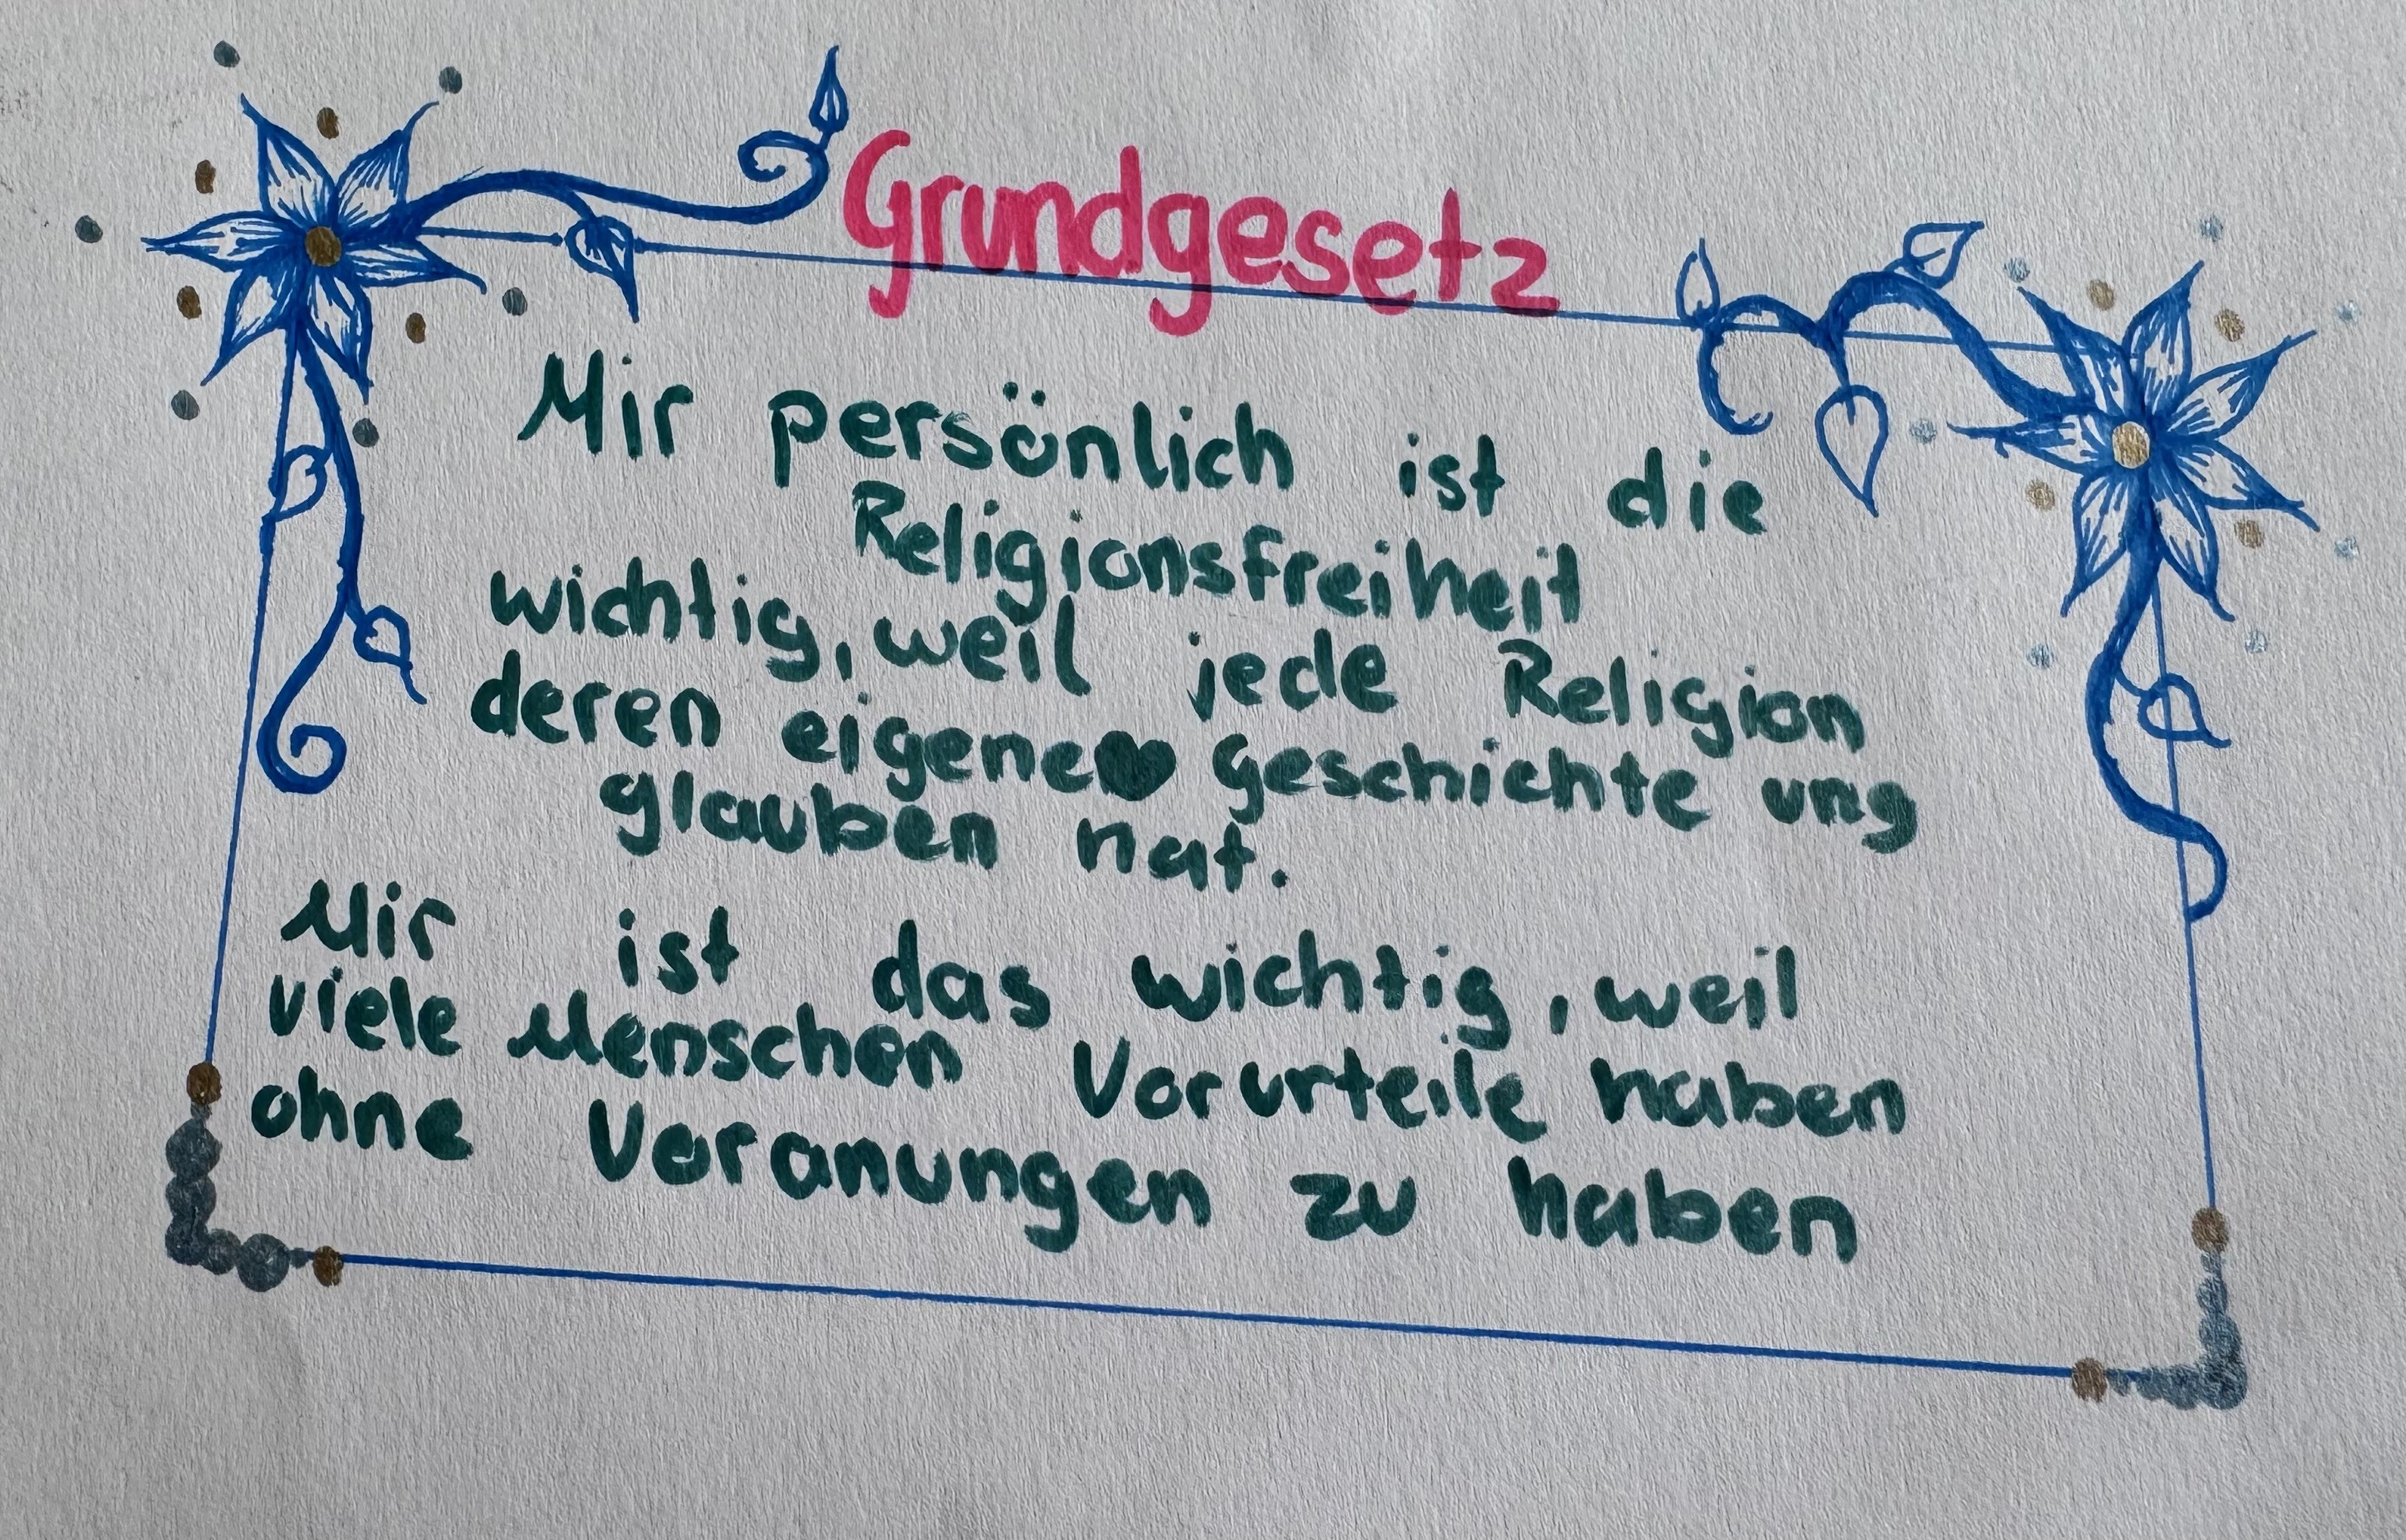 Grundgesetz
Mir persönlich ist die
Religionsfreiheit
wichtig, weil jede Religion
deren eigene Geschichte ung
glauben hat.
Mir ist das wichtig, weil
viele Menschen Vorurteile haben
ohne Voranungen zu haben